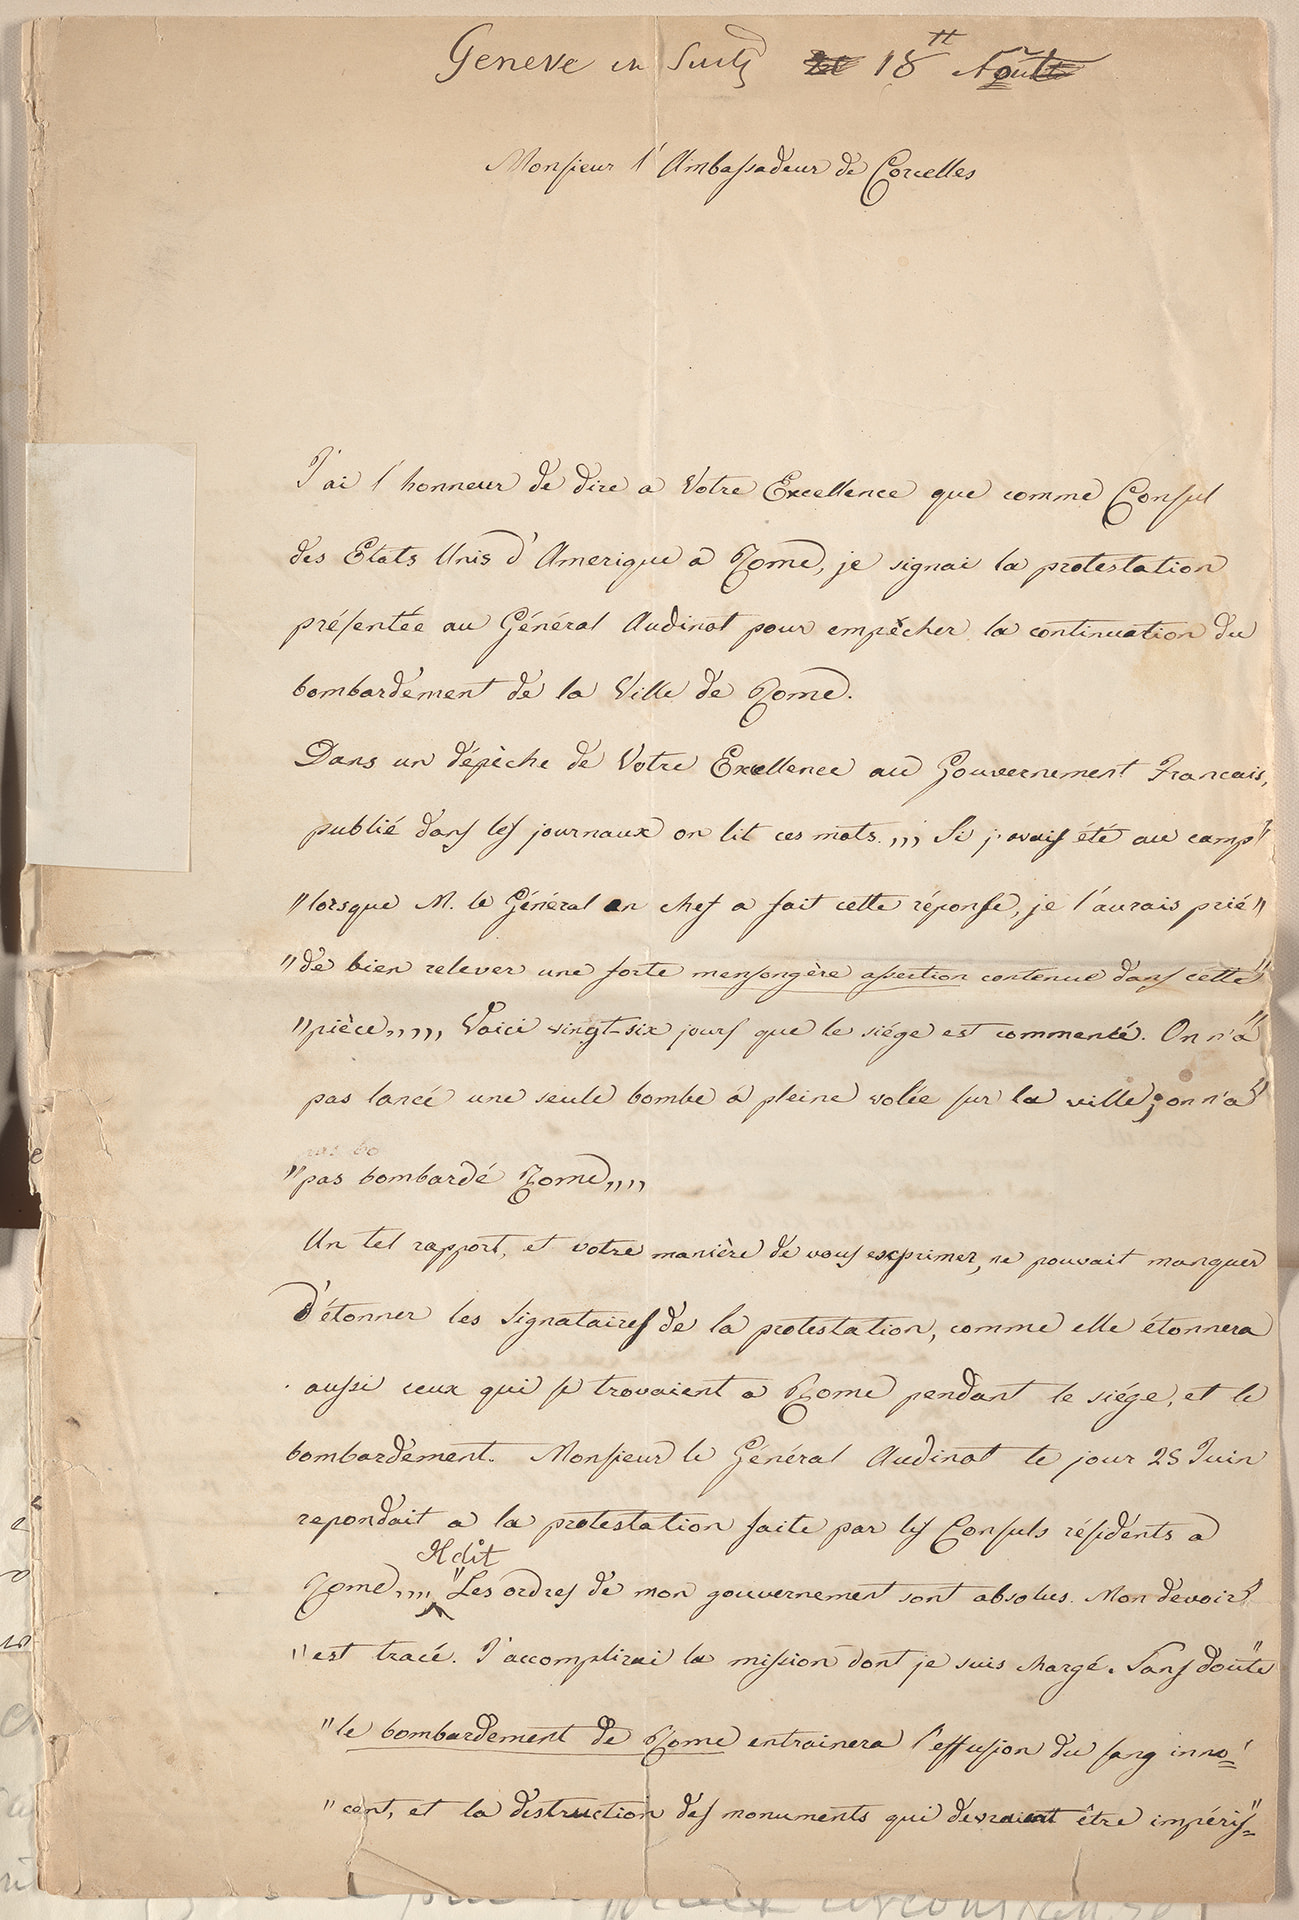 Geneve en Suis 18 Août
Monsieur l'Ambassadeur de Corcelles
J'ai l'honneur de dire a Votre Excellence que comme Consul
des Etats Unis d'Amerique a Rome, je signai la protestation
présentée au Général Audinot pour empêcher la continuation du
bombardement de la Ville de Rome.
Dans un dépèche de Votre Excellence au Gouvernement Francais,
publié dans les journaux on lit ces mots.,,, Si j'avais été au camp"
"lorsque M. le Général en chef a fait cette réponse, je l'aurais prié"
"de bien relever une forte mensongère assertion contenue dans cette"
"pièce,,,, Voici vingt-six jours que le siége est commencé. On n'a"
pas lancé une seule bombe à pleine volée sur la ville; on n'a"
"pas bombardé Rome,,,,
Un tel rapport, et votre manière de vous exprimer, ne pouvait manquer
d'étonner les signataires de la protestation, comme elle étonnera
aussi ceux qui se trovaient a Rome pendant le siége, et le
bombardement. Monsieur le Général Audinot le jour 25 Juin
repondait a la protestation faite par les Consuls résidents a
Il dit
Rome,,,, "Les ordres de mon gouvernement sont absolus. Mon devoir"
"est tracé. J'accomplirai la mission dont je suis chargé. Sans doute"
"le bombardement de Rome entrainera l'effusion du sang inno="
"cent, et la destruction des monuments qui devraient être impéris="